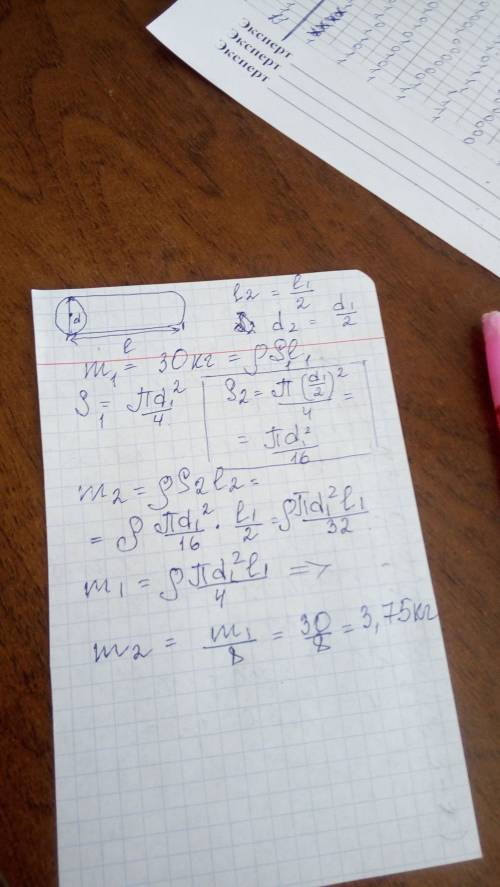 Эксперт
Эксперт
Эксперт
d
l
l₂ = l₁/2
d₂ = d₁/2
m₁ = 30кг = ρS₁l₁
S₁ = πd₁²/4
S₂ = π(d₁/2)²/4 =
= πd₁²/16
m₂ = ρS₂l₂ =
= ρ πd₁²/16 · l₁/2 = ρ πd₁²l₁/32
m₁ = ρ πd₁²l₁/4 =>
m₂ = m₁/8 = 30/8 = 3,75кг